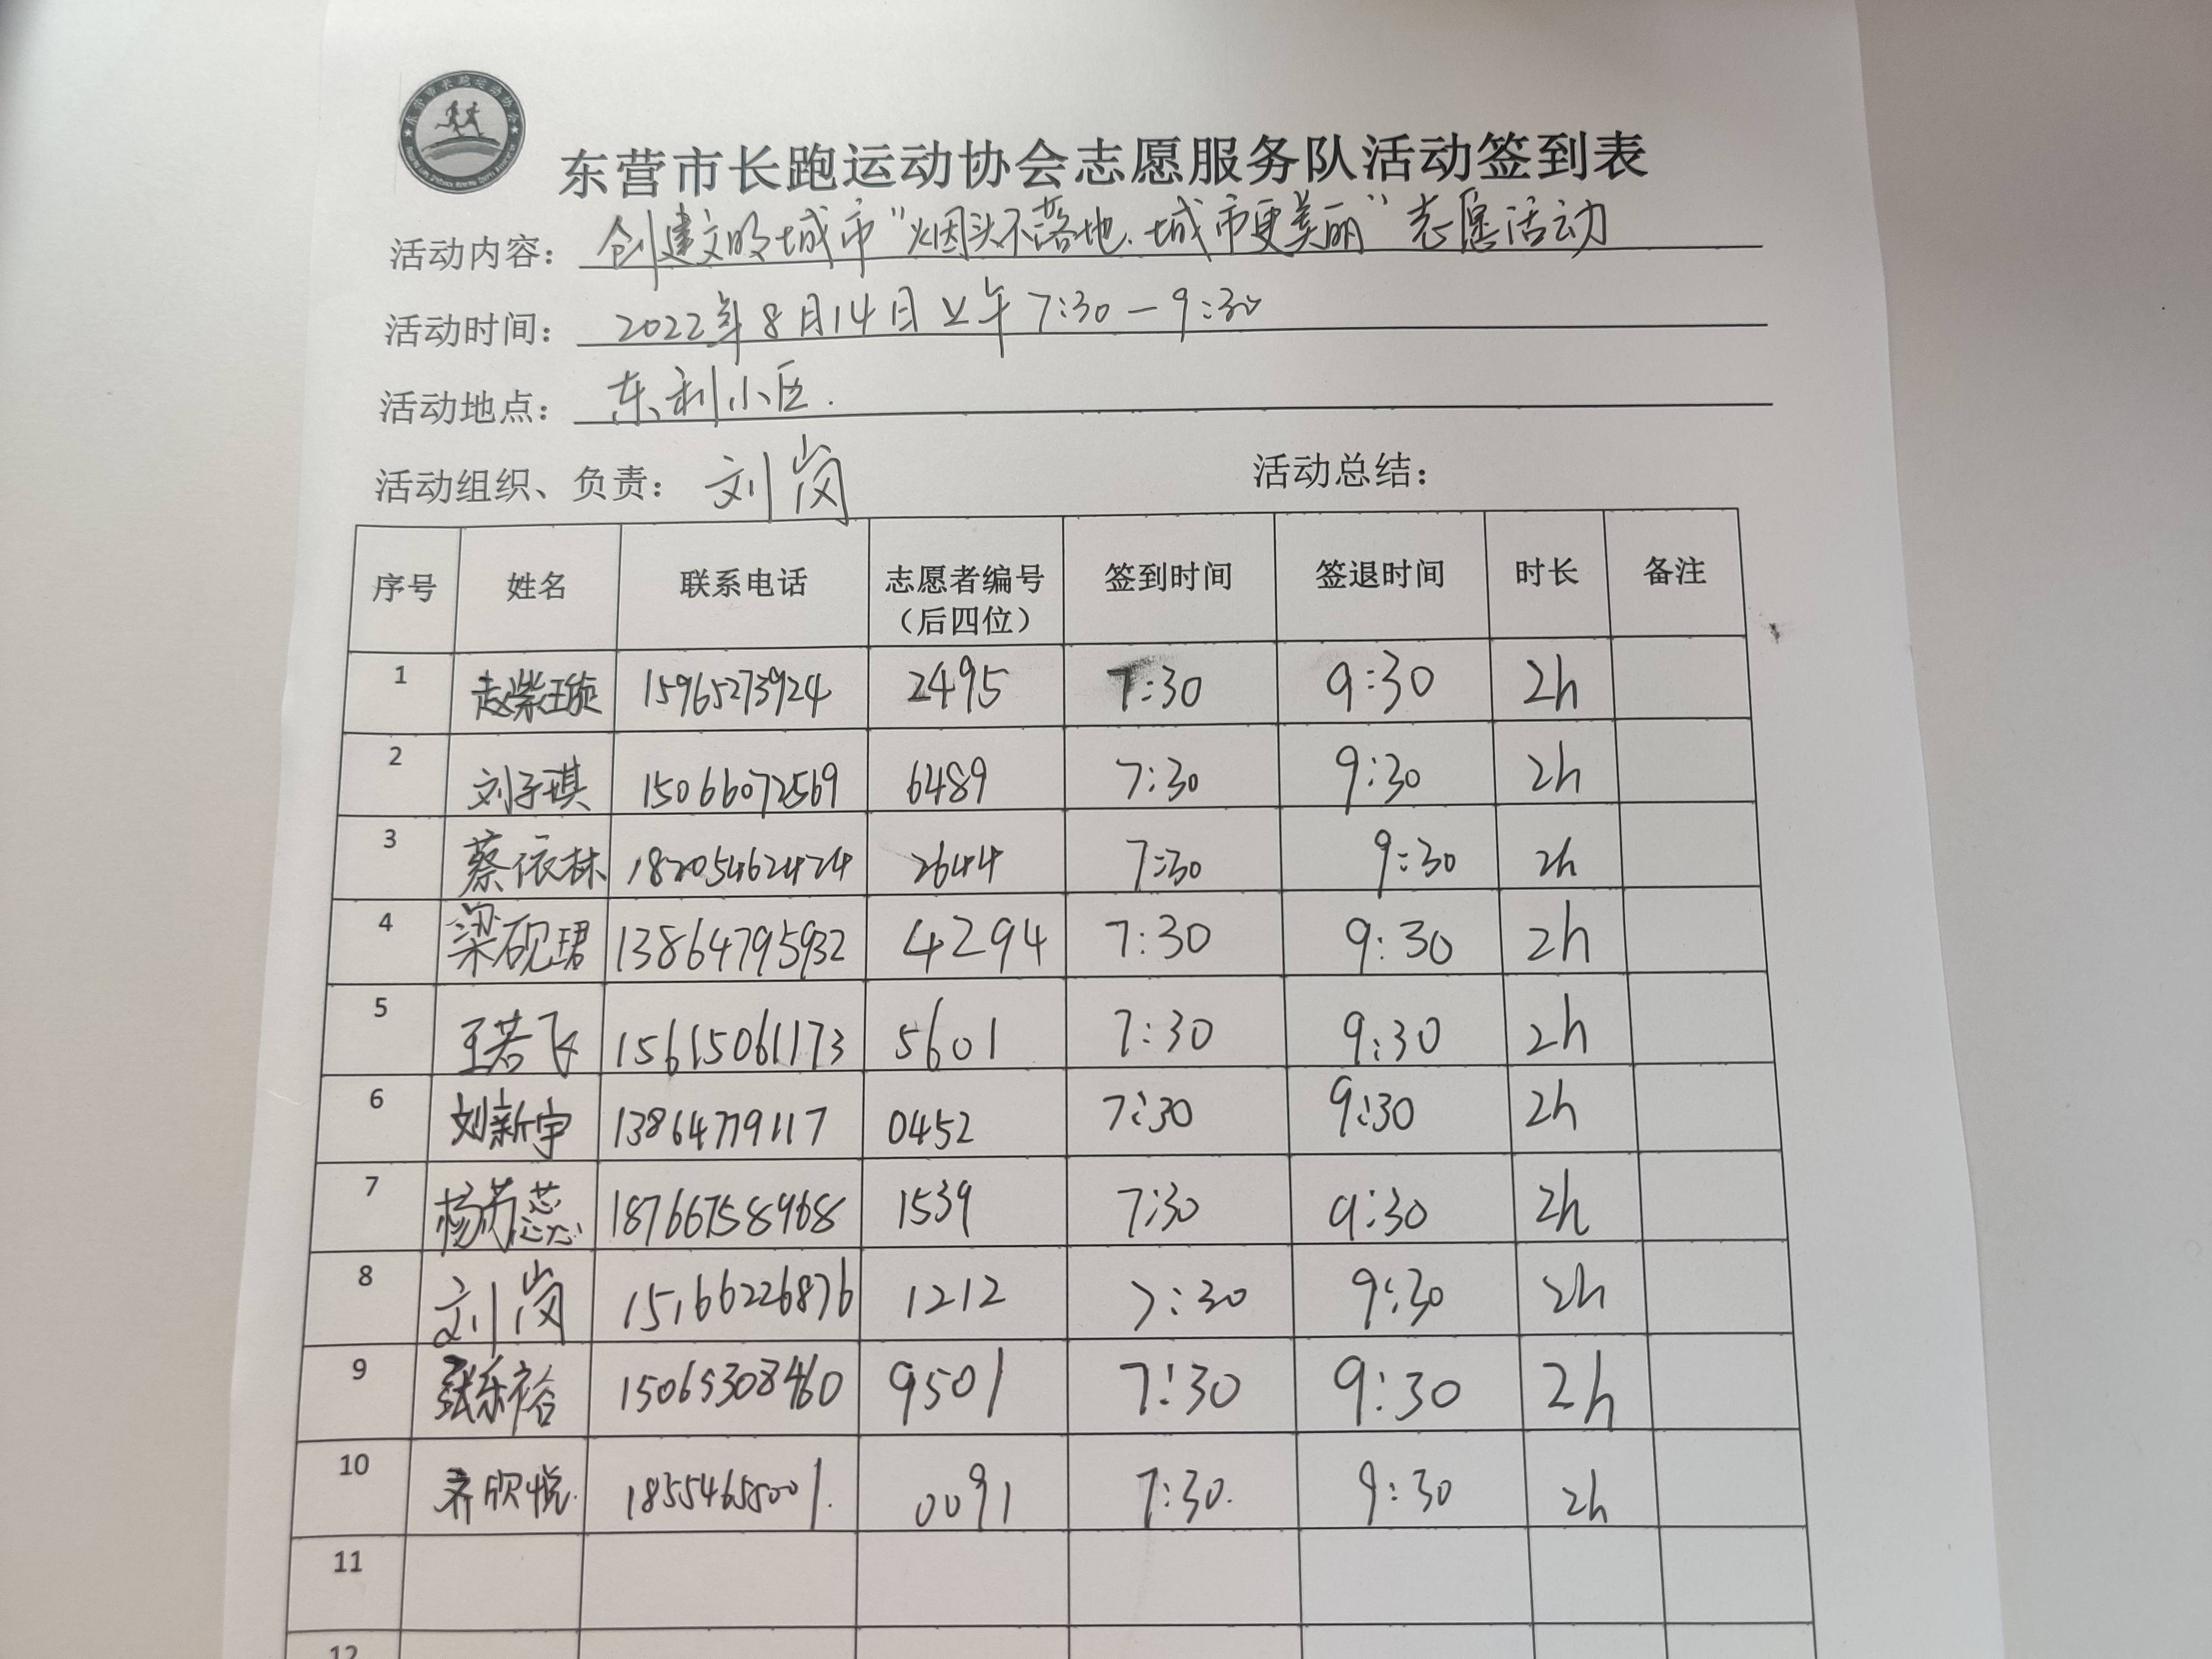 东营市长跑运动协会
东营市长跑运动协会志愿服务队活动签到表
活动内容：创建文明城市“烟头不落地.城市更美丽”志愿活动
活动时间：2022年8月14日上午7:30—9:30
活动地点：东利小区.
活动组织、负责：刘岗 活动总结：
序号 姓名 联系电话 志愿者编号（后四位） 签到时间 签退时间 时长 备注
1 赵紫璇 15965273924 2495 7:30 9:30 2h
2 刘子琪 15066072569 6489 7:30 9:30 2h
3 蔡依林 18205462424 2644 7:30 9:30 2h
4 梁砚珺 13864795932 4294 7:30 9:30 2h
5 王若飞 15615061173 5601 7:30 9:30 2h
6 刘新宇 13864779117 0452 7:30 9:30 2h
7 杨芮蕊 18766758968 1539 7:30 9:30 2h
8 刘岗 15166226876 1212 7:30 9:30 2h
9 张乐裕 15065308460 9501 7:30 9:30 2h
10 齐欣悦. 18554655001. 0091 7:30. 9:30 2h
11
12